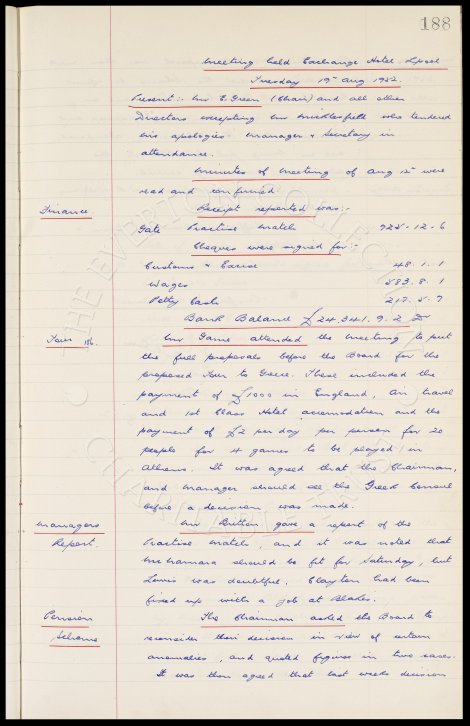 188
Meeting held Exchange Hotel Lpool
Tuesday 19th Aug 1952.
Present:- Mr E. Green (Chair) and all other
Directors excepting Mr Micklesfield who tendered
his apologies Manager & Secretary in
attendance.
Minutes of Meeting of Aug 12th were
read and confirmed
Finance. Receipt reported was:-
Gate Practise Match 925-12-6
Cheques were signed for:-
Customs & Excise 48.1.1
Wages 583.8.1
Petty Cash 217.5.7
Bank Balance £24,341.9.2
Tour 186 Mr Game attended the meeting to put
the full proposals before the Board for the
proposed Tour to Greece. These included the
payment of £1000 in England, Air travel
and 1st Class Hotel accomodation and the
payment of £2 per day per person for 20
people for 4 games to be played in
Athens. It was agreed that the Chairman,
and Manager should see the Greek Consul
before a decision, was made.
Managers Mr Britton gave a report of the
Report. Practise Match, and it was noted that
McNamara should be fit for Saturday, but
Lewis was doubtful. Clayton had been
fixed up with a job at Blades.
Pension The Chairman asked the Board to
Scheme reconsider their decision in view of certain
anomalies, and quoted figures in two cases.
It was then agreed that last weeks decision
THE EVERTON COLLECTION
CHARITABLE TRUST